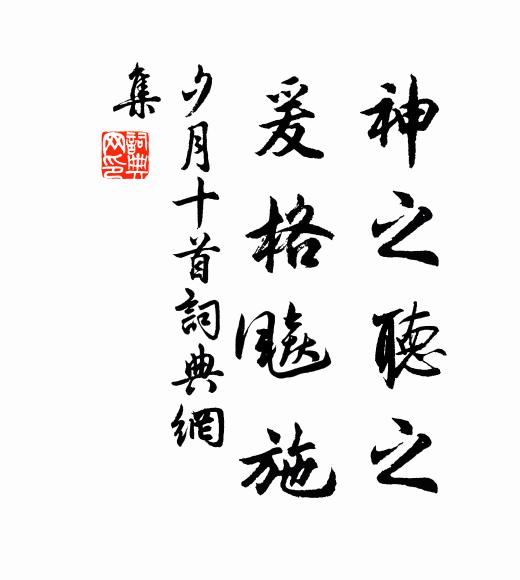 神之聽之
爰格飈施
夕月十首詞典網
集
詞典
网印